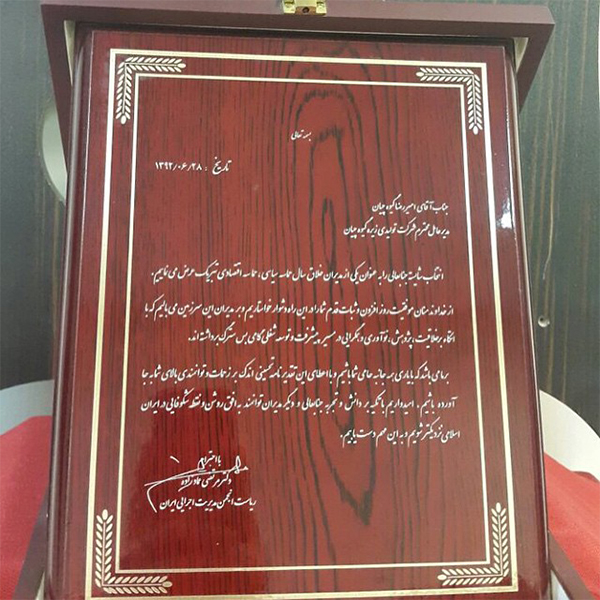 بسمه تعالی
تاریخ : ۱۳۹۲/۰۶/۲۸
جناب آقای امیررضا گیوه چیان
مدیرعامل محترم شرکت تولیدی زیره گیوه چیان
انتخاب شایسته جنابعالی را به عنوان یکی از مدیران خلاق سال حماسه سیاسی، حماسه اقتصادی تبریک عرض می نماییم.
از خداوند منان موفقیت روز افزون و ثبات قدم شما را در این راه دشوار خواستاریم و بر مدیران این سرزمین می بالیم که با
اتکاء بر خلاقیت، پژوهش، نوآوری و همگرایی در مسیر پیشرفت و توسعه شغلی گامی بس سترگ برداشته اند.
بر ما می باشد که با یاری همه جانبه حامی شما باشیم و با اعطای این تقدیرنامه تحسینی اندک بر زحمات و توانمندی بالای شما به جا
آورده باشیم . امیدواریم با تکیه بر دانش و تجربه جنابعالی و دیگر مدیران توانمند به افق روشن و نقطه شکوفائی در ایران
اسلامی نزدیکتر شویم و به این مهم دست یابیم.
با احترام
دکتر مرتضی عمادزاده
ریاست انجمن مدیریت اجرایی ایران